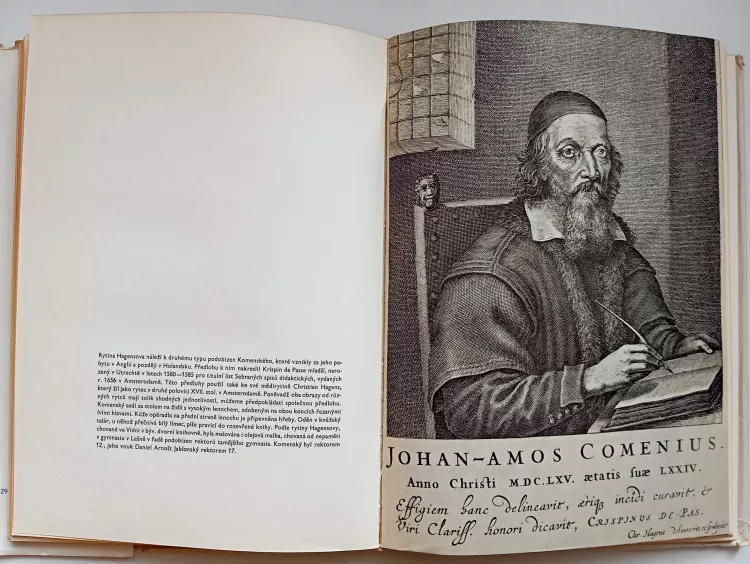 Rytina Hagensova náleží k druhému typu podobizen Komenského, které vznikly za jeho po-
bytu v Anglii a později v Holandsku. Předlohu k nim nakreslil Krispin de Passe mladší, naro-
zený v Utrechtě v letech 1580—1585 pro titulní list Sebraných spisů didaktických, vydaných
r. 1656 v Amsterodamě. Této předlohy použil také ke své mědirytině Christian Hagens,
který žil jako rytec v druhé polovici XVII. stol. v Amsterodamě. Poněvadž oba obrazy od růz-
ných rytců mají tolik shodných jednotlivostí, můžeme předpokládati společnou předlohu.
Komenský sedí za stolem na židli s vysokým lenochem, zdobeným na obou koncích řezanými
lvími hlavami. Kůže opěradla na přední straně lenochu je připevněna hřeby. Oděn v kněžský
talár, u něhož přečnívá bílý límec, píše pravicí do rozevřené knihy. Podle rytiny Hagensovy,
chované ve Vídni v býv. dvorní knihovně, byla malována i olejová malba, chovaná od nepaměti
v gymnasiu v Lešně v řadě podobizen rektorů tamějšího gymnasia. Komenský byl rektorem
12., jeho vnuk Daniel Arnošt Jablonský rektorem 17.
29
JOHAN-AMOS COMENIUS.
Anno Christi M.DC.LXV. ætatis suæ LXXIV.
Effigiem hanc delineavit, æriq incidi curavit, &
Viri Clariss. honori dicavit, CRISPINUS DE PAS.
Chr. Hagens delineavit et sculpsit